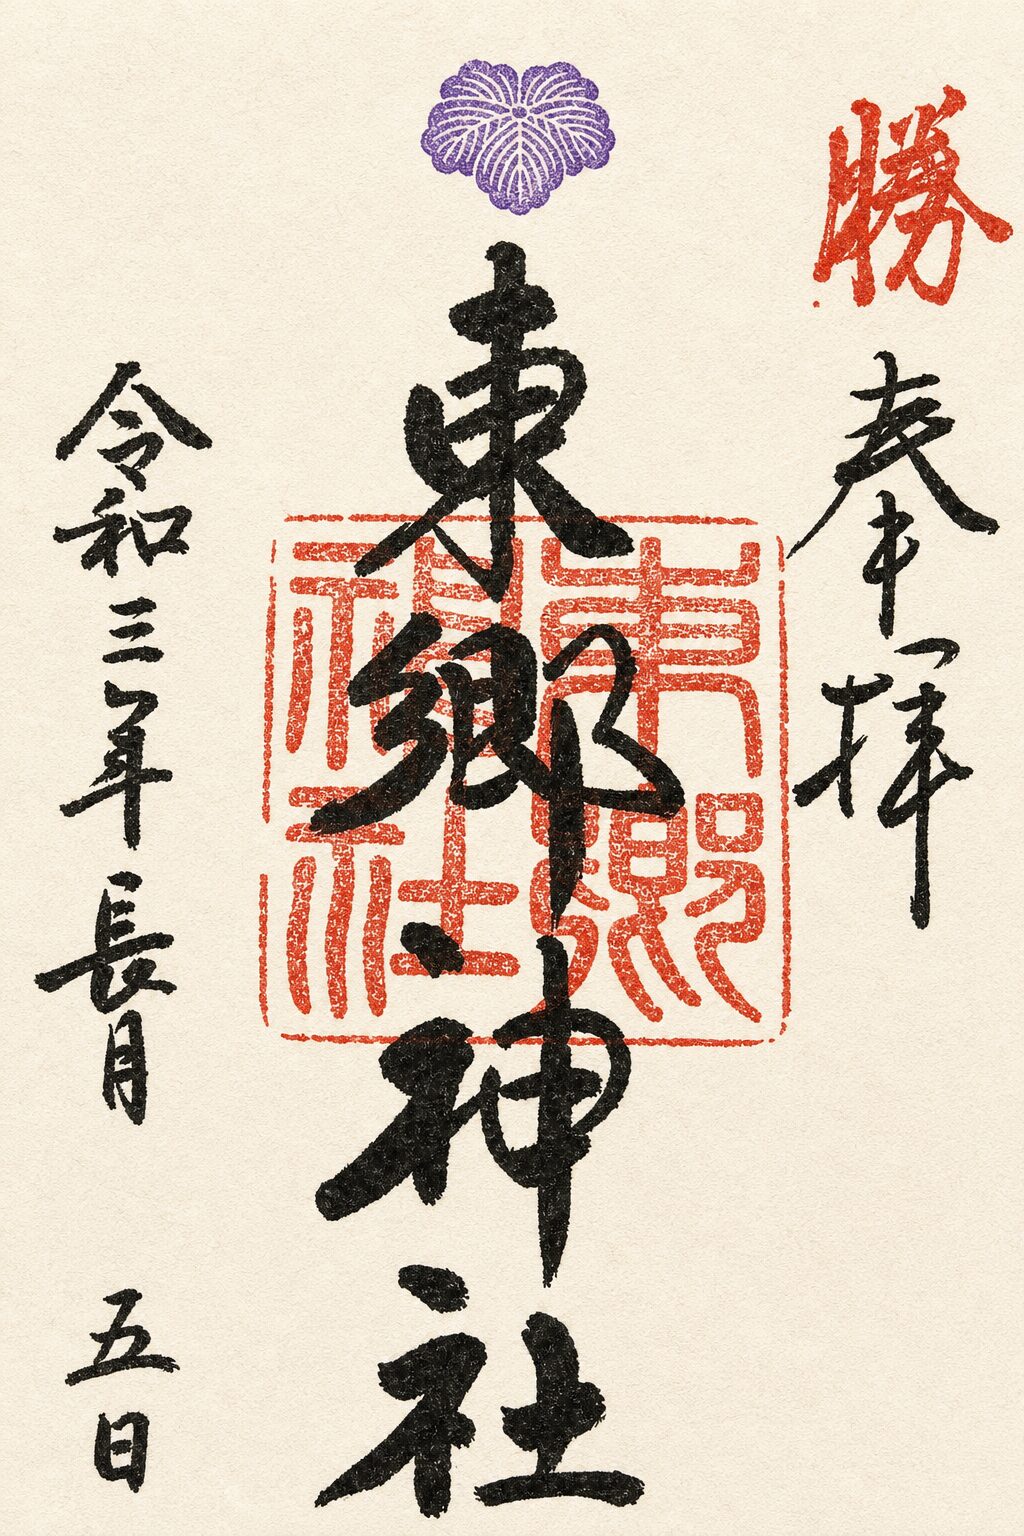 勝
奉拝
東郷神社
東郷神社
令和三年長月五日